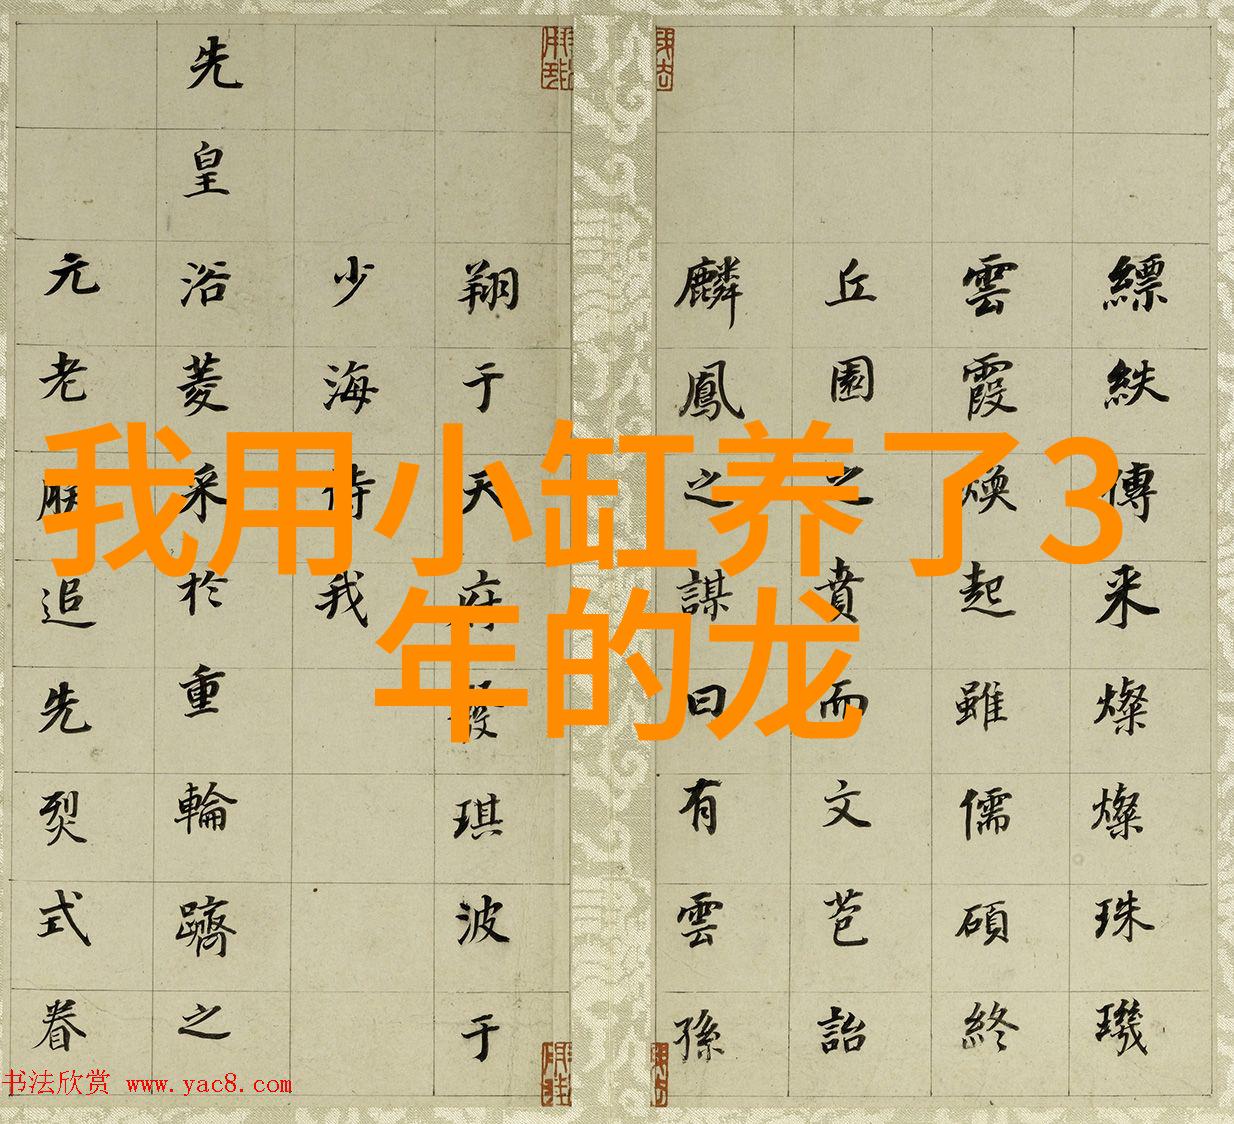 我用小缸养了3
年的龙
縹紩傳采燦燦珠璣
雲霞煥起雖儒碩終
丘園之賁而文苞詒
麟鳳之謀曰有雲孫
翔于天府發琪波于
少海侍我
先皇浴菱采於重輪躋之
元老朕追先烈式眷
书法欣赏 www.yac8.com